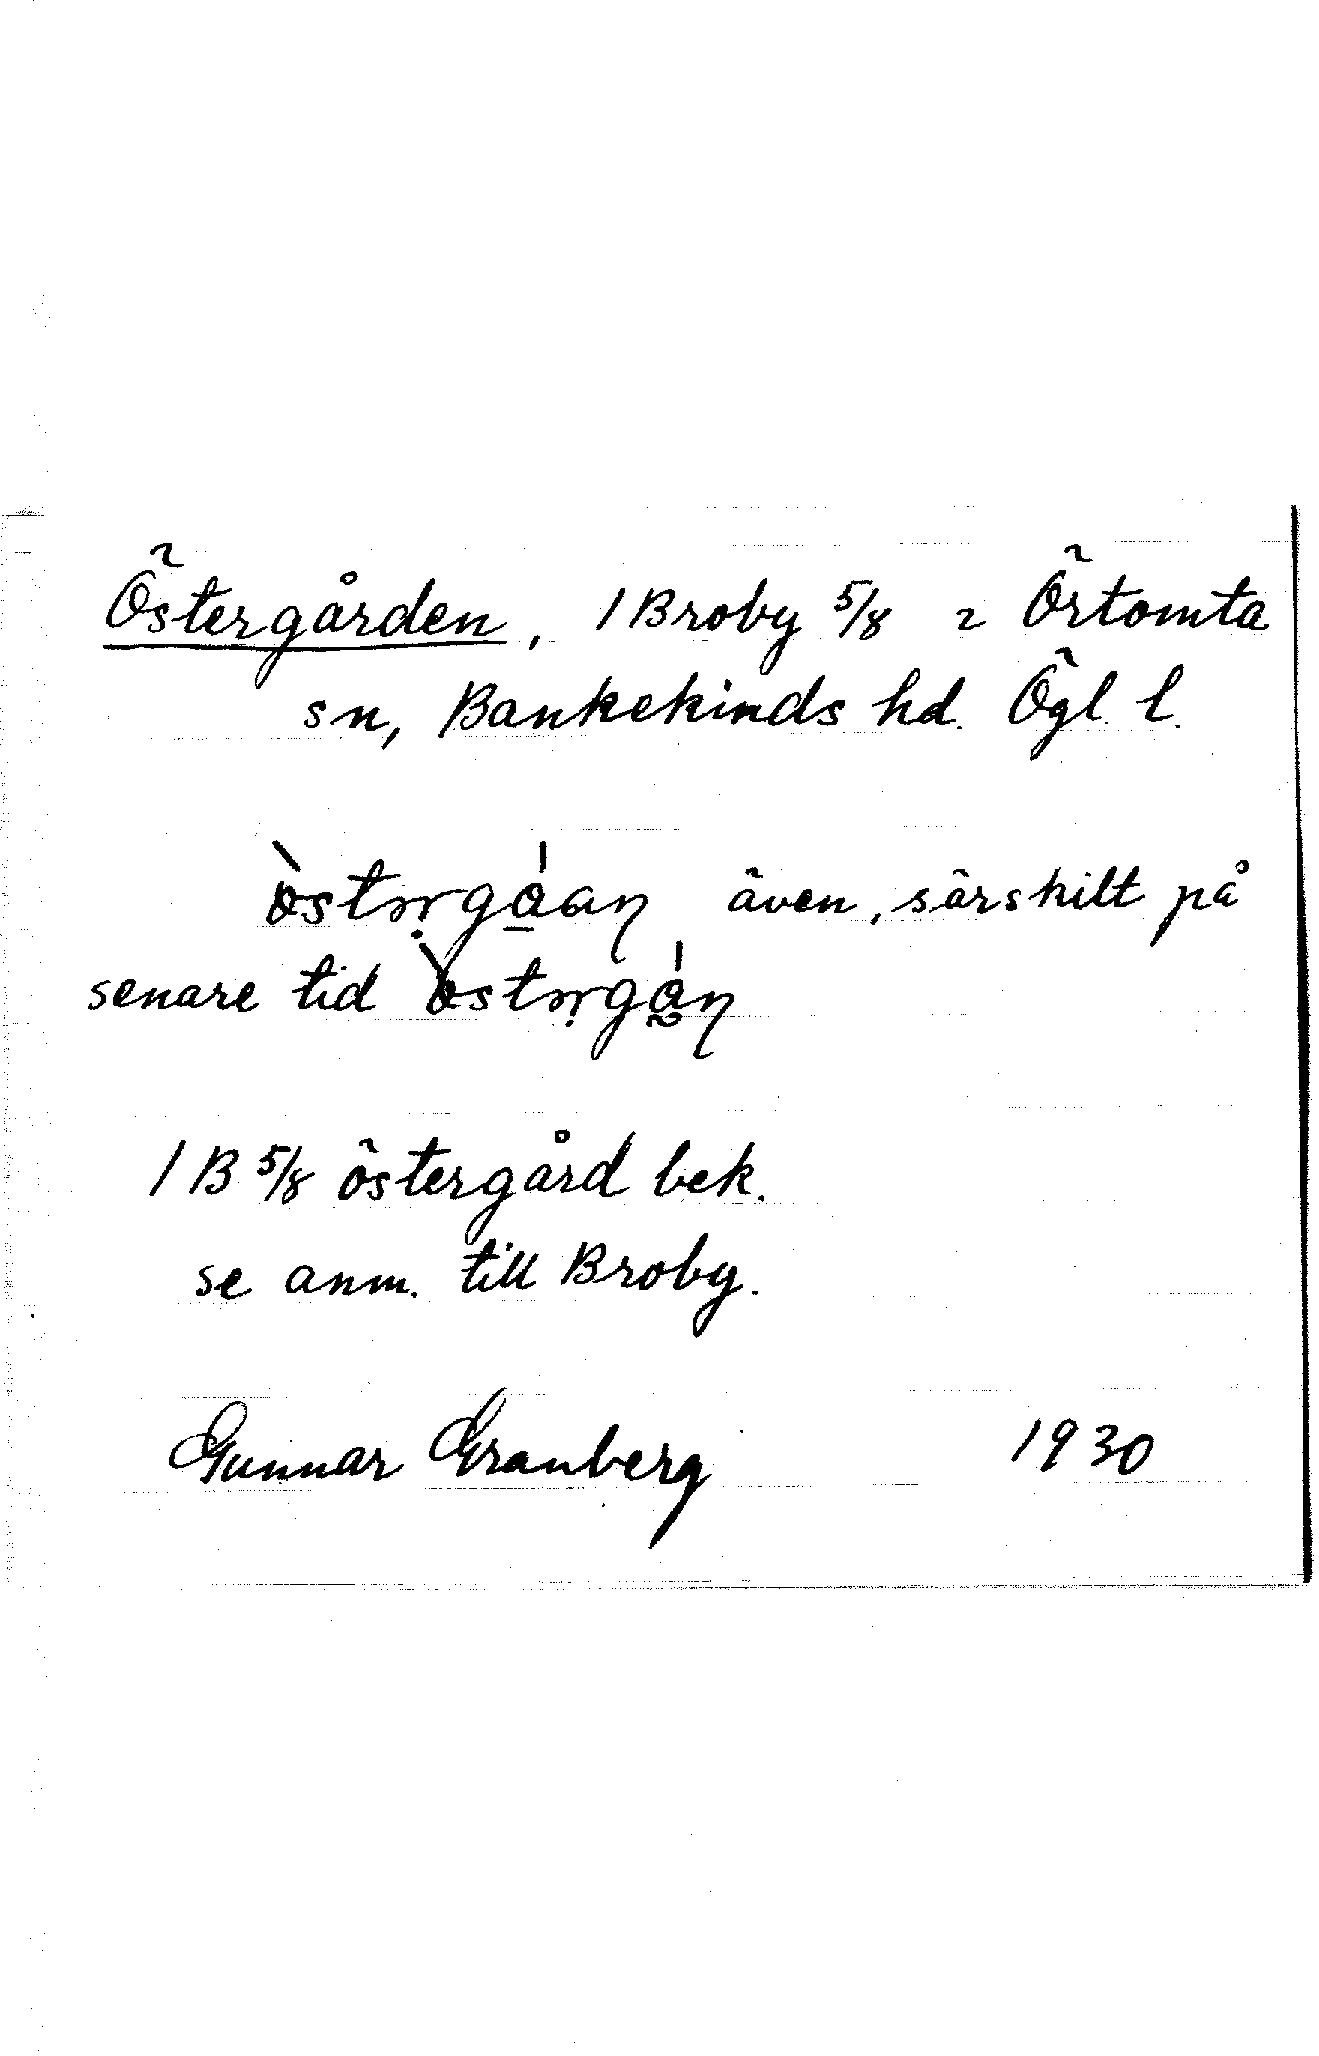 Östergården, 1 Broby 5/8 i Örtomta
sn, Bankekinds hd. Ögl. l.
även, särskilt på
senare tid
1 B 5/8 östergård bek.
se anm. till Broby.
Gunnar Granberg 1930